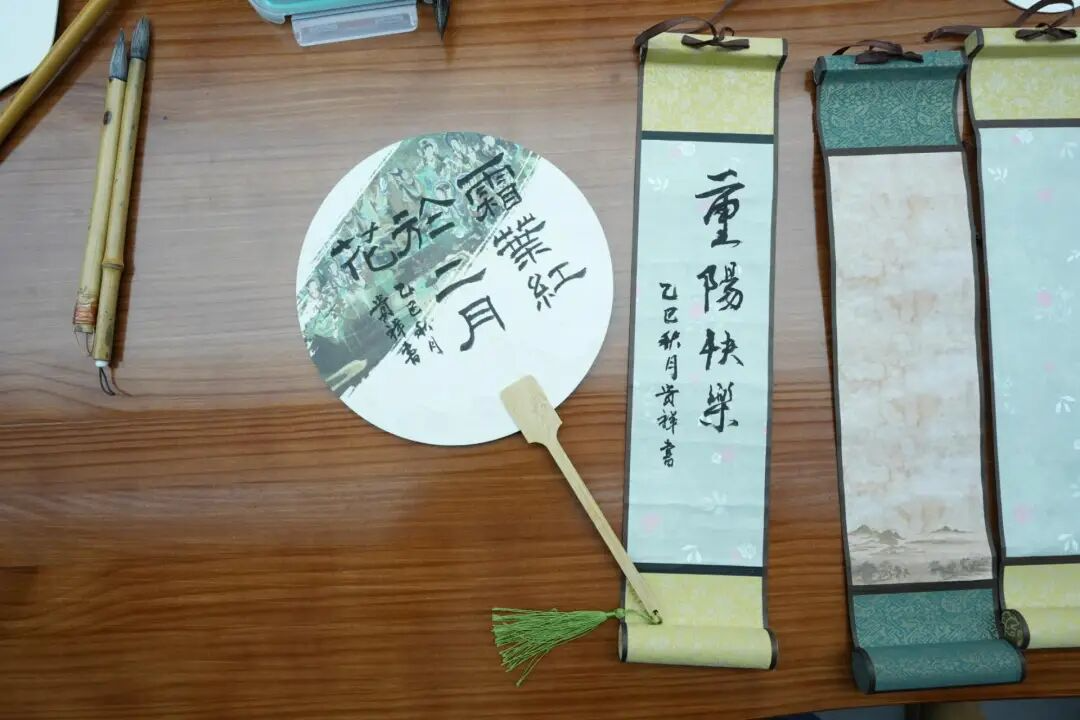 霜葉紅
於二月
花
乙巳秋月
贵祥書
重陽快樂
乙巳秋月贵祥書